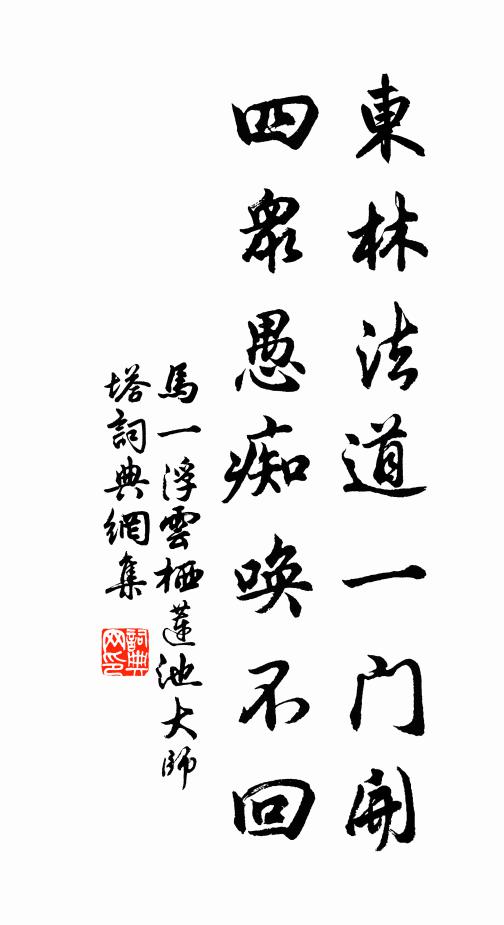 東林法道一門開
四衆愚痴喚不回
馬一浮雲栖蓮池大師
塔詞典網集
詞典网印